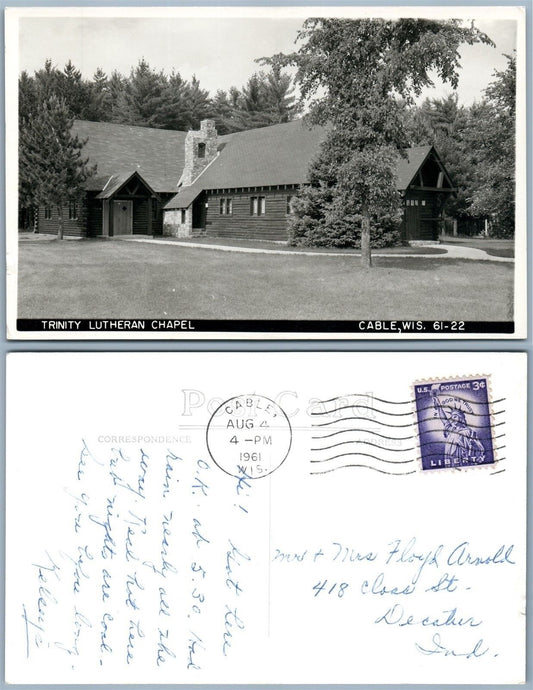 TRINITY LUTHERAN CHAPEL
CABLE, WIS. 61-22
Post Card
CORRESPONDENCE
ADDRESS
CABLEY
AUG 4
4 - PM
1961
WIS.
U.S. POSTAGE 3¢
IN GOD WE TRUST
LIBERTY
Hi! Got here
O.K. at 5:30. Had
rain nearly all the
way. Real hot here
but nights are cool-
See you before long.
Kelseys
Mr + Mrs Floyd Arnold
418 Closs St.
Decatur
Ind.